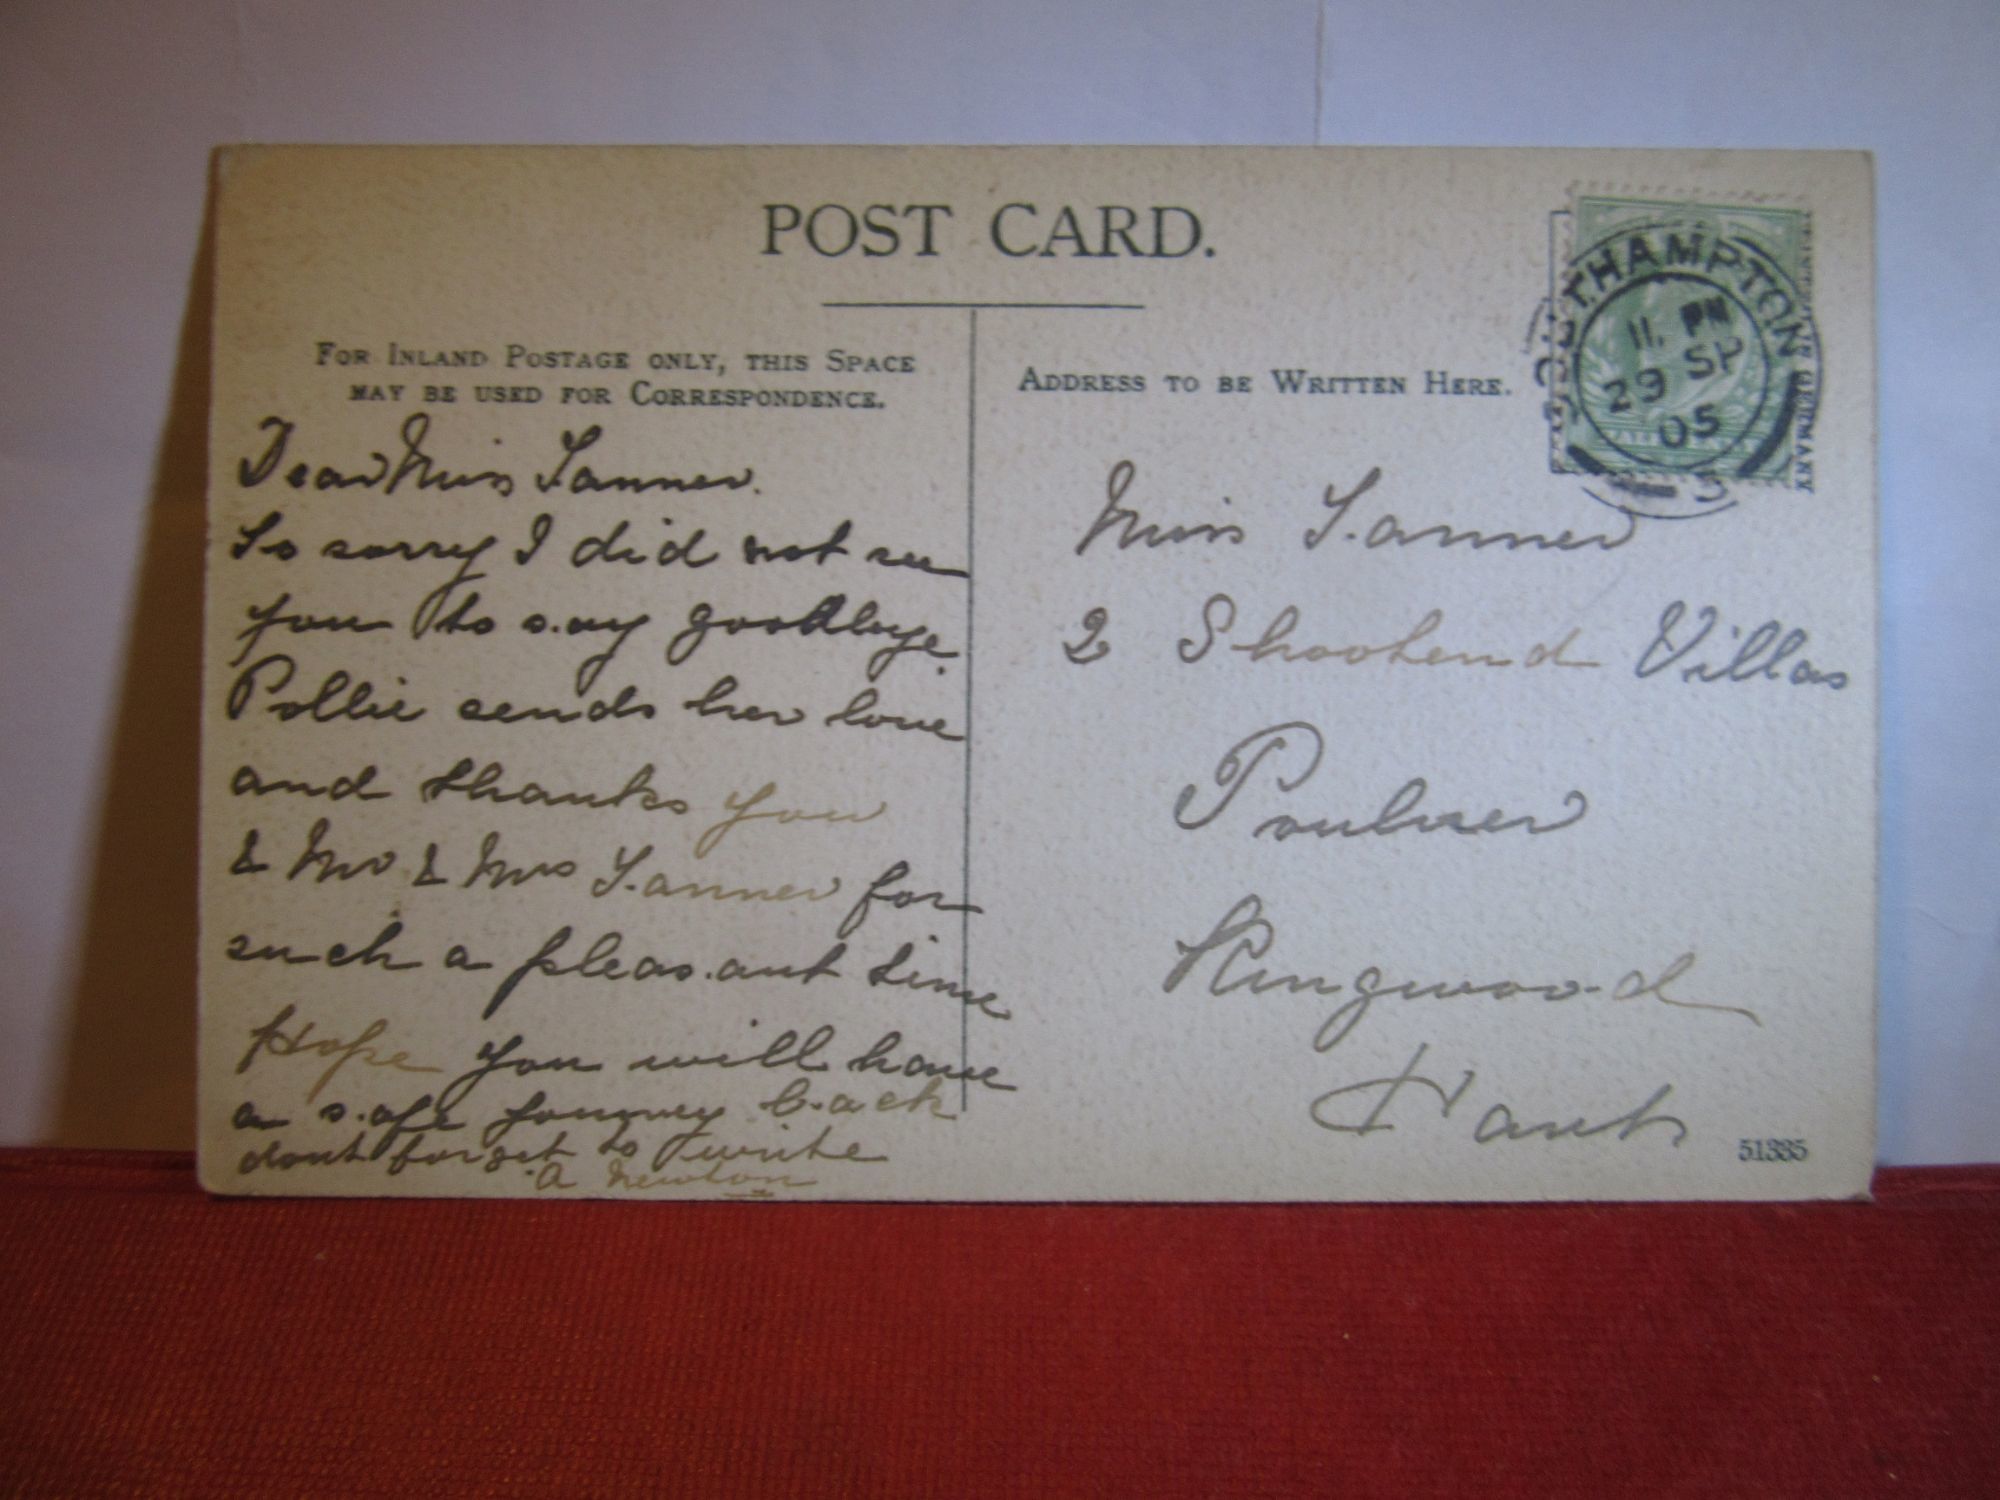 POST CARD.
FOR INLAND POSTAGE ONLY, THIS SPACE
MAY BE USED FOR CORRESPONDENCE.
Dear Miss Tanner.
So sorry I did not see
you to say goodbye.
Pollie sends her love
and thanks you
& Mr & Mrs Tanner for
such a pleasant time
Hope you will have
a safe journey back
dont forget to write
A Newton
ADDRESS TO BE WRITTEN HERE.
Miss Tanner
2 Shootend Villas
Poulner
Ringwood
Hants
51335
SOUTHAMPTON
11. PM
29 SP
05
3